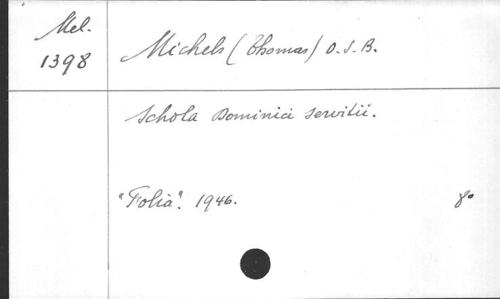 Mel.
1398
Michels (Thomas) O.S.B.
Schola Dominici servitii.
"Folia". 1946. 8°